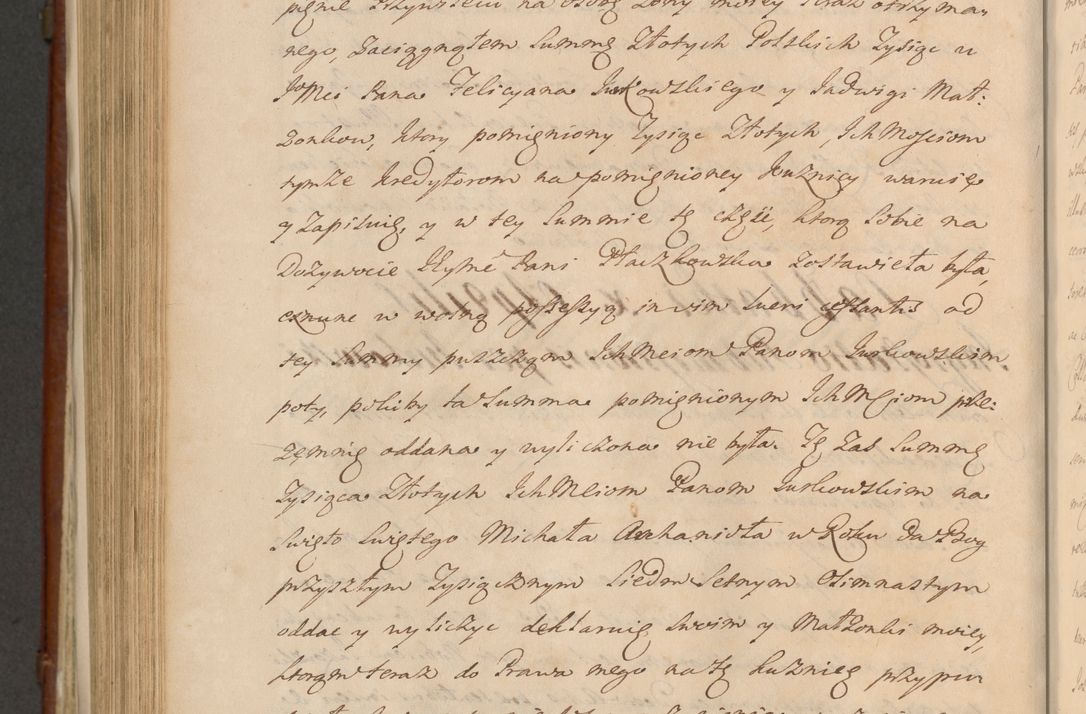 nego, zaciągnąłem Summę Złotych Polskich Tysiąc u
JoMci Pana Felicyana Jurkowskiego y Jadwigi Mał:
zonkow, ktory pomieniony Tysiąc Złotych, Ich Mosciom
tymże kredytorom na pomienioney Kuznicy waruię
y zapisuię, y w tey Summie tę część, ktorą sobie na
Dozywocie Pani Płaczkowska zostawiła była,
w wolną possessyą in vim lucri cessantis od
tey Summy puszczam Ich Mciom Panom Jurkowskim
poty, pokiby ta Summa pomienionym Ich Mciom prze:
zemnię oddana y wyliczona nie była. Tę zas Summę
Tysiąca Złotych Ich Mciom Panom Jurkowskim na
Swięto Swiętego Michała Archanioła w Roku Da Bog
przyszłym Tysiącznym Siedmsetnym Osimnastym
oddac y wyliczyc deklaruię swoim y Małżonki moiey,
ktorąm teraz do Prawa mego na tę kuznicę przypu